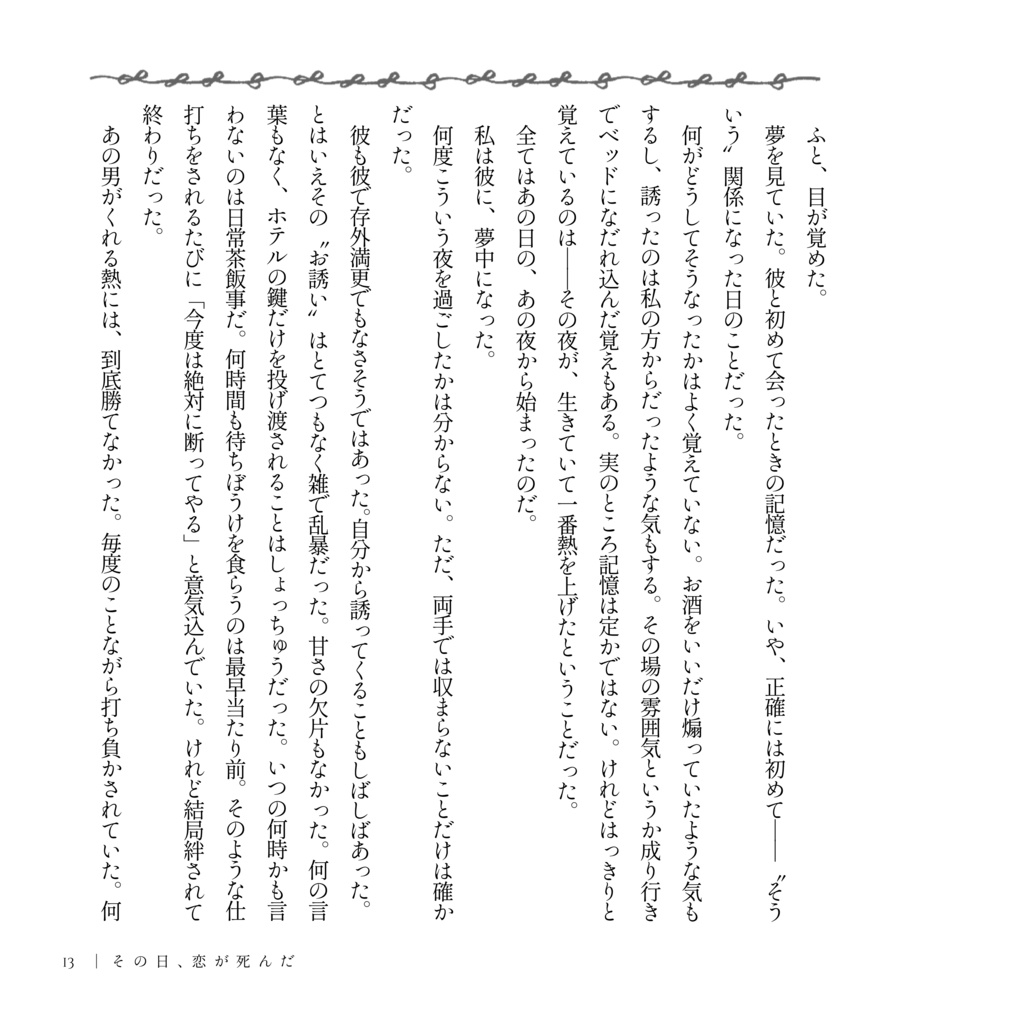 ふと、目が覚めた。
夢を見ていた。彼と初めて会ったときの記憶だった。いや、正確には初めて――〝そう
いう〟関係になった日のことだった。
何がどうしてそうなったかはよく覚えていない。お酒をいいだけ煽っていたような気も
するし、誘ったのは私の方からだったような気もする。その場の雰囲気というか成り行き
でベッドになだれ込んだ覚えもある。実のところ記憶は定かではない。けれどはっきりと
覚えているのは――その夜が、生きていて一番熱を上げたということだった。
全てはあの日の、あの夜から始まったのだ。
私は彼に、夢中になった。
何度こういう夜を過ごしたかは分からない。ただ、両手では収まらないことだけは確か
だった。
彼も彼で存外満更でもなさそうではあった。自分から誘ってくることもしばしばあった。
とはいえその〝お誘い〟はとてつもなく雑で乱暴だった。甘さの欠片もなかった。何の言
葉もなく、ホテルの鍵だけを投げ渡されることはしょっちゅうだった。いつの何時かも言
わないのは日常茶飯事だ。何時間も待ちぼうけを食らうのは最早当たり前。そのような仕
打ちをされるたびに「今度は絶対に断ってやる」と意気込んでいた。けれど結局絆されて
終わりだった。
あの男がくれる熱には、到底勝てなかった。毎度のことながら打ち負かされていた。何
13 | その日、恋が死んだ